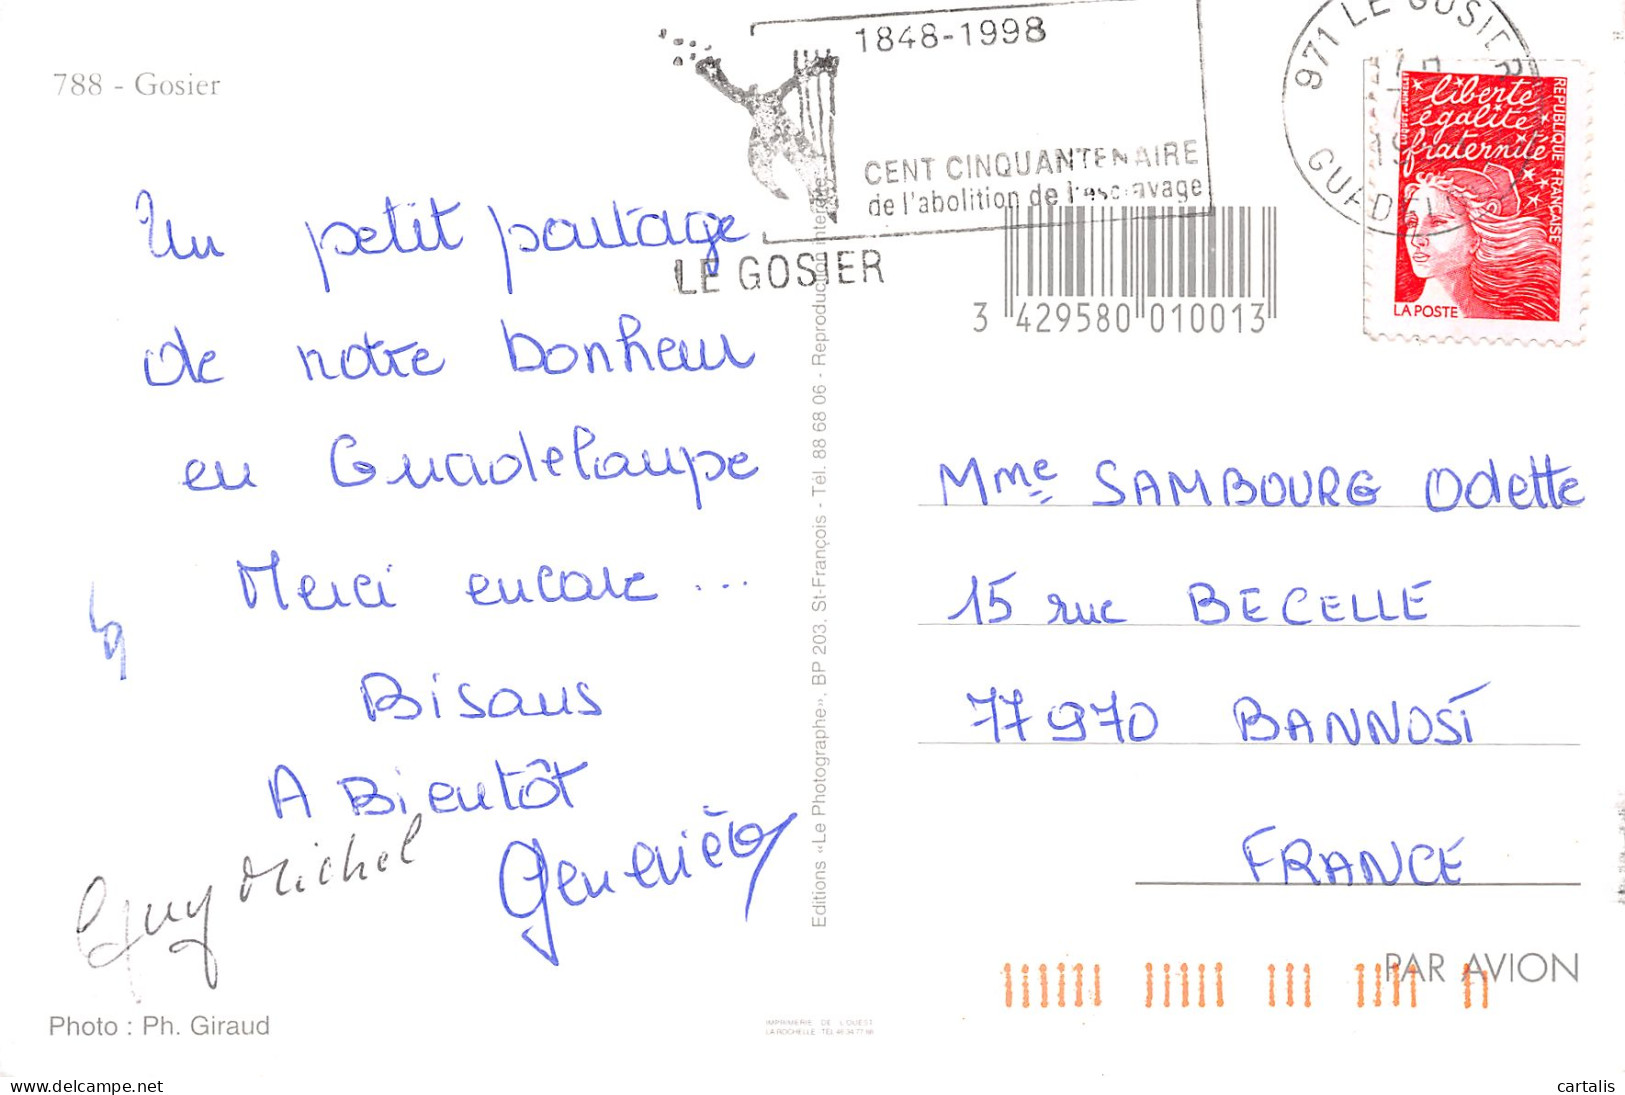 788 - Gosier
1848-1998
CENT CINQUANTENAIRE
de l'abolition de l'esclavage
LE GOSIER
971 LE GOSIER
liberté
égalité
fraternité
RÉPUBLIQUE FRANÇAISE
LA POSTE
3 429580 010013
Un petit partage
de notre bonheur
en Guadeloupe
Merci encore ...
Bisous
A Bientôt
Guy Michel
Geneviève
Photo : Ph. Giraud
Editions «Le Photographe», BP 203. St-François - Tél. 88 68 06 - Reproduction interdite
Mme SAMBOURG Odette
15 rue BECELLE
77970 BANNOST
FRANCE
PAR AVION
IMPRIMERIE DE L'OUEST
LA ROCHELLE
delcampe.net
cartalis